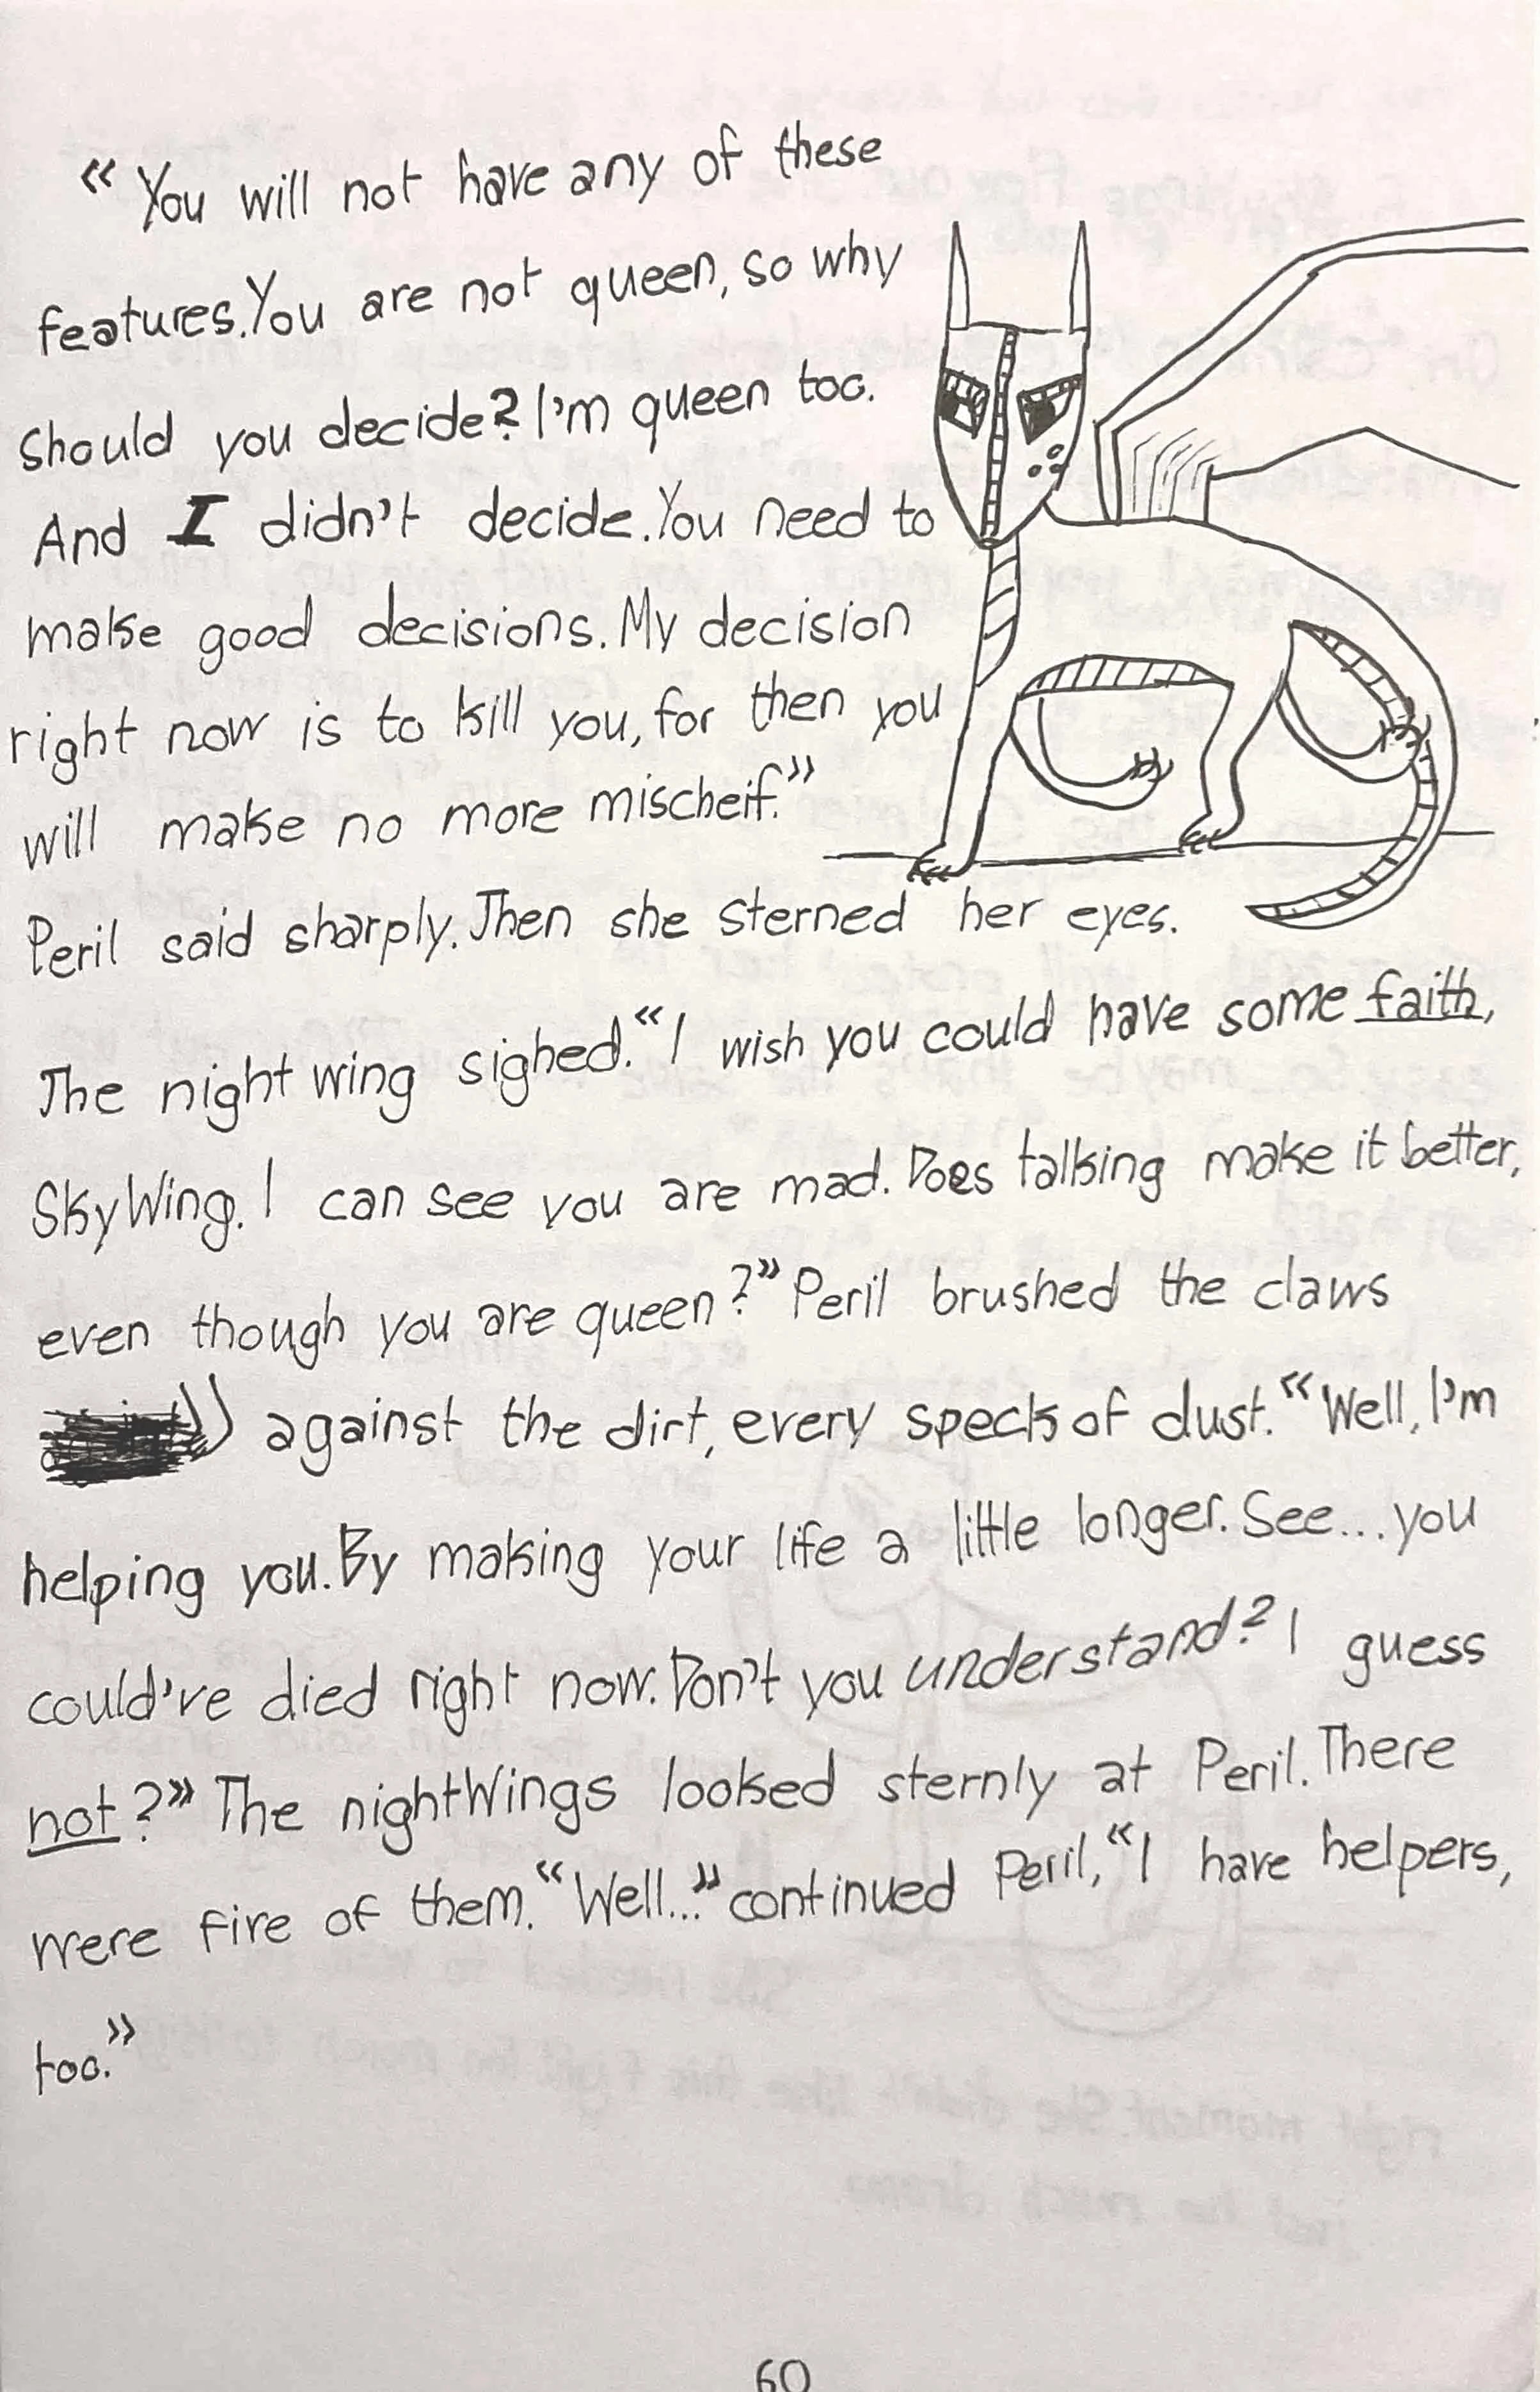 “You will not have any of these
features. You are not queen, so why
should you decide? I'm queen too.
And I didn't decide. You need to
make good decisions. My decision
right now is to kill you, for then you
will make no more mischeif.”
Peril said sharply. Then she sterned her eyes.
The night wing sighed. “I wish you could have some faith,
SkyWing. I can see you are mad. Does talking make it better,
even though you are queen?” Peril brushed the claws
against the dirt, every speck of dust. “Well, I'm
helping you. By making your life a little longer. See... you
could've died right now. Don't you understand? I guess
not?” The nightWings looked sternly at Peril. There
were fire of them. “Well...” continued Peril, “I have helpers,
too.”
60